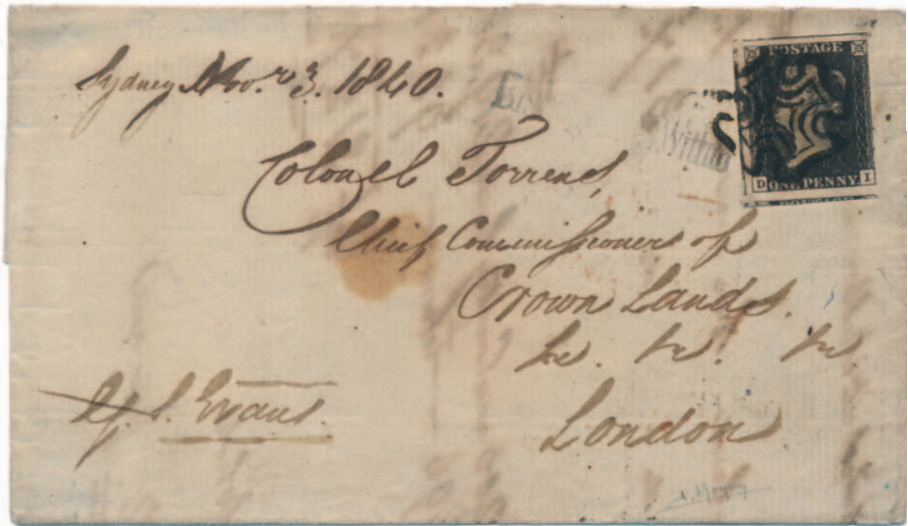 Sydney Nov.r 3. 1840.
POSTAGE
Within
D ONE PENNY I
Colonel Torrens,
Chief Commissioner of
Crown Lands.
&c. &c. &c.
London
Evans.